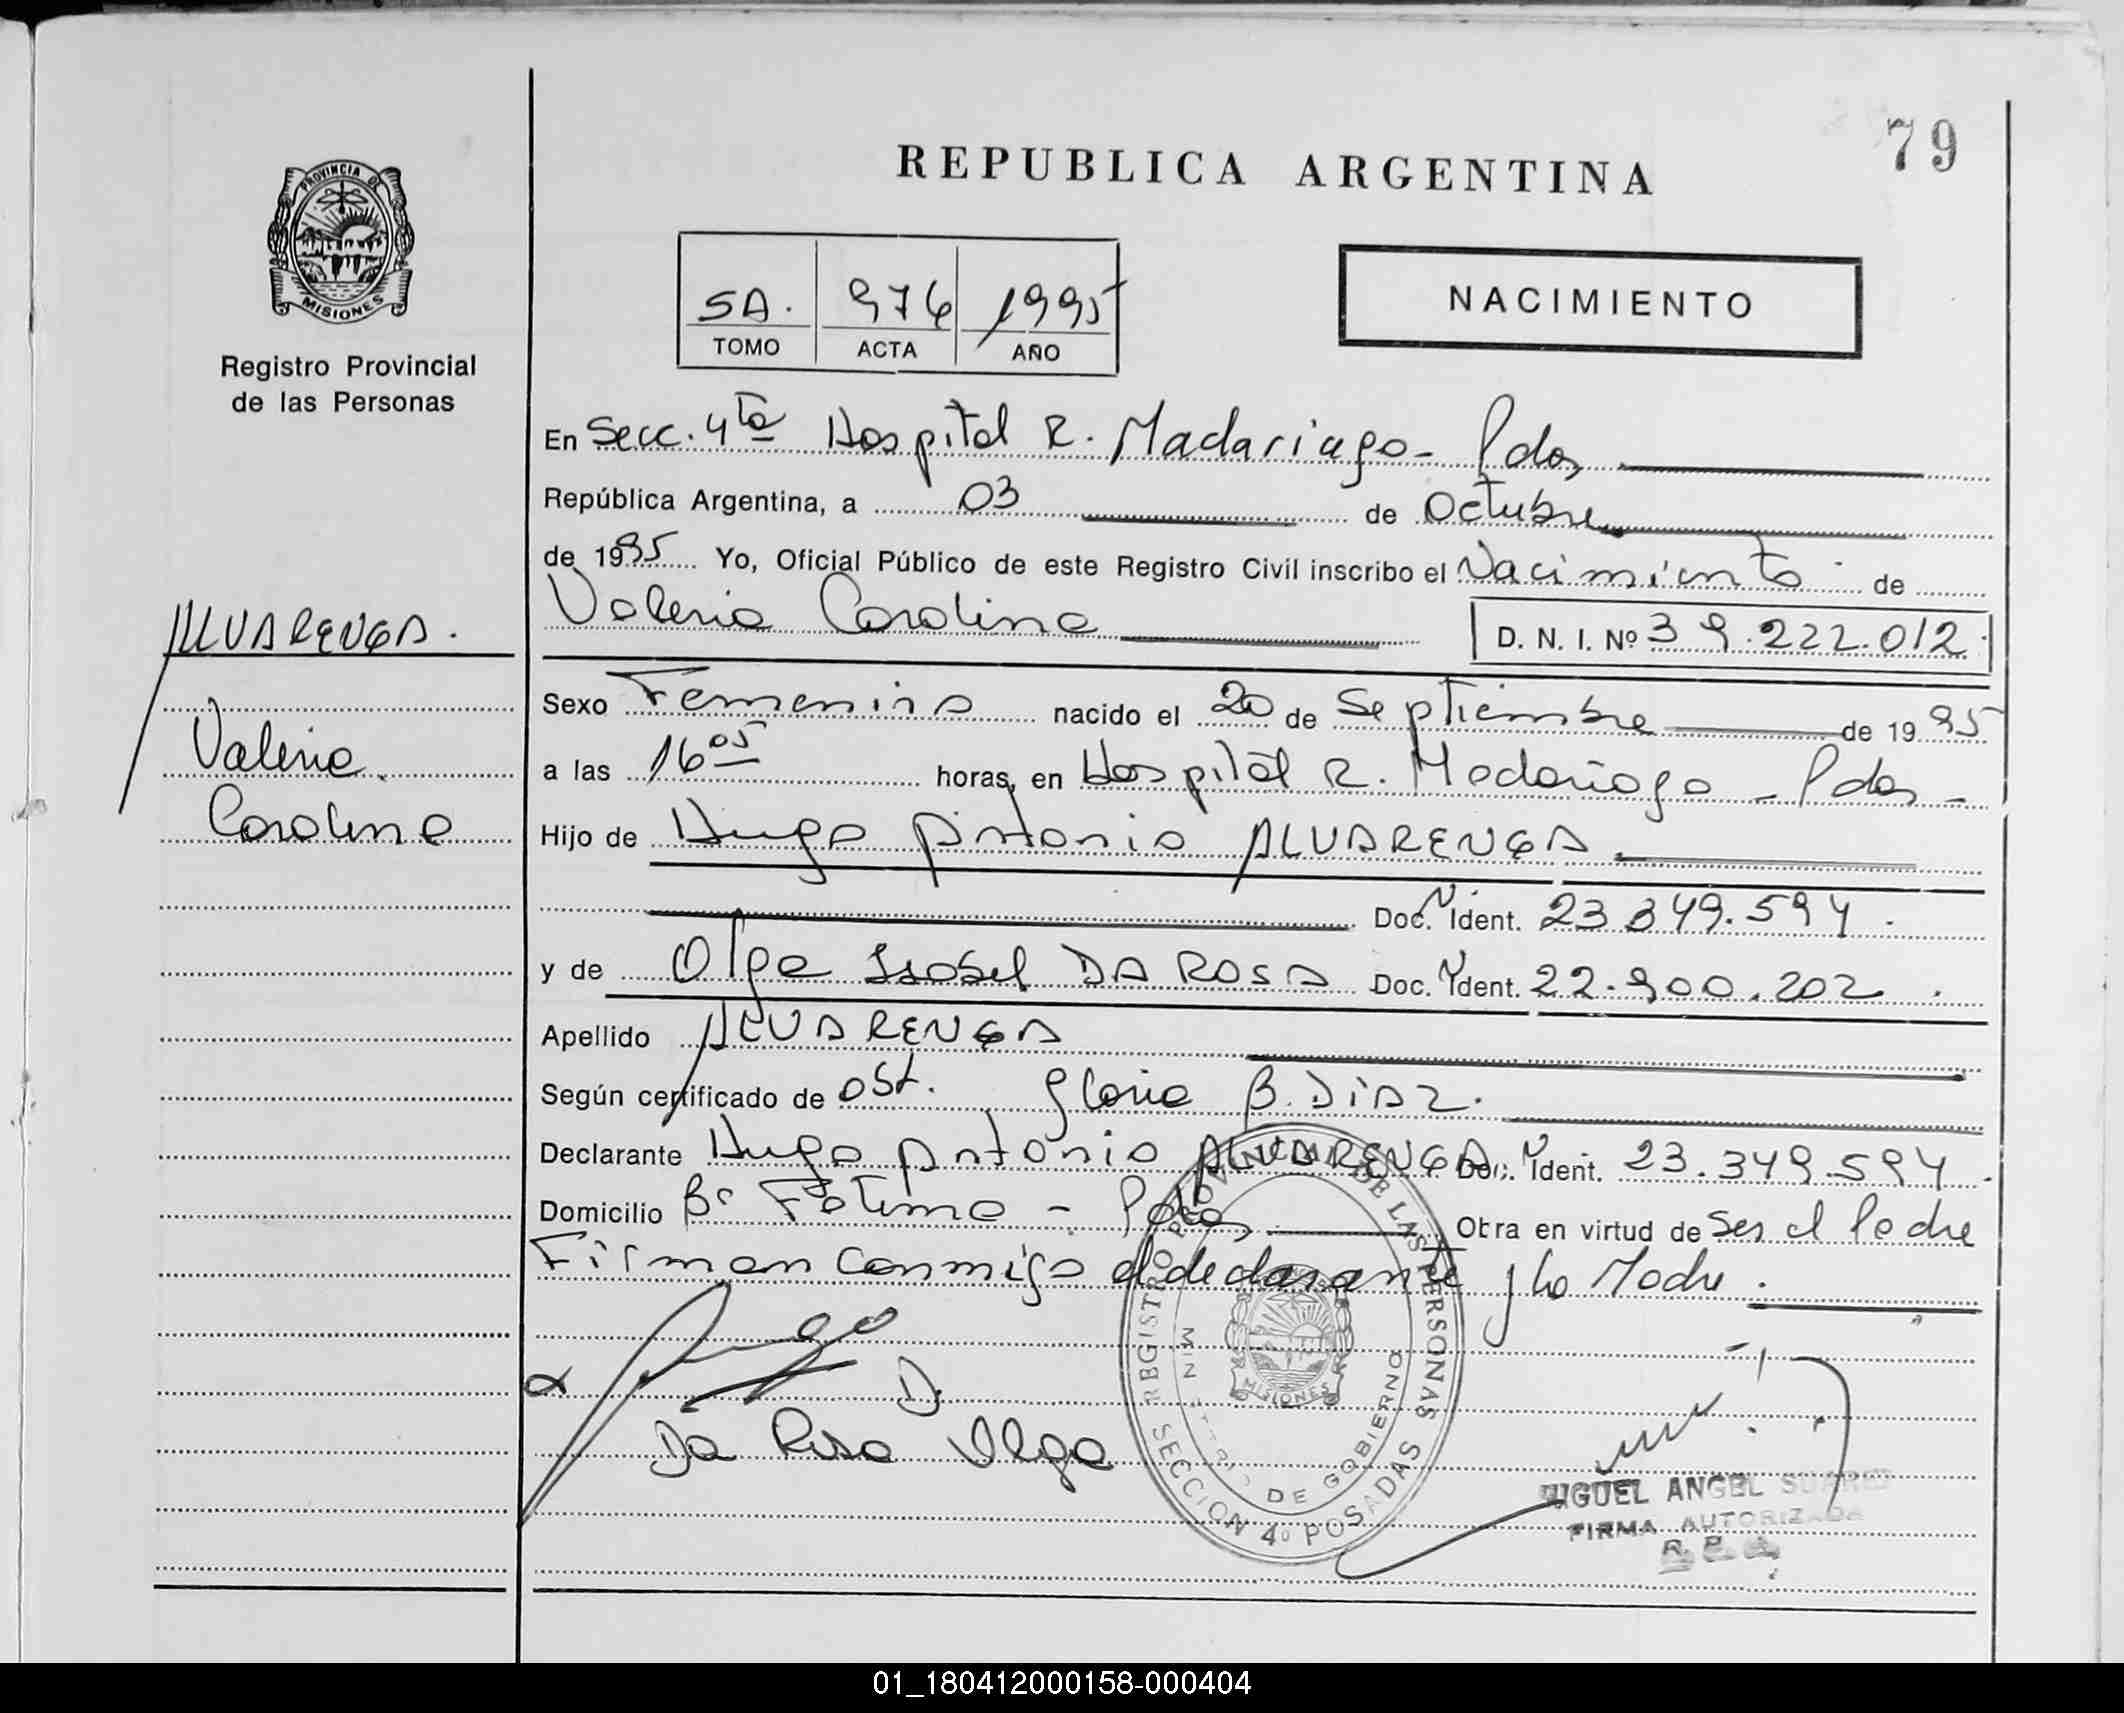 79
REPUBLICA ARGENTINA
PROVINCIA DE
MISIONES
Registro Provincial
de las Personas
5A. 976 1995
TOMO ACTA AÑO
NACIMIENTO
En Secc. 4ta Hospital R. Madariaga - Pdas,
República Argentina, a 03 de Octubre
de 1995 Yo, Oficial Público de este Registro Civil inscribo el Nacimiento de
Valeria Carolina D. N. I. Nº 39.222.012
ALVARENGA.
Valeria
Carolina
Sexo Femenino nacido el 20 de Septiembre de 1995
a las 16 05 horas, en Hospital R. Madariaga - Pdas -
Hijo de Hugo Antonio ALVARENGA
Doc. Ident. 23.349.594.
y de Olga Isabel DA ROSA Doc. Ident. 22.900.202.
Apellido ALVARENGA
Según certificado de Obst. Gloria B. Diaz.
Declarante Hugo Antonio ALVARENGA Doc. Ident. 23.349.594.
Domicilio Bº Fatima - Pdas, Obra en virtud de Ser el Padre
Firman conmigo el declarante y la Madre.
Da Rosa Olga
REGISTRO PROVINCIAL DE LAS PERSONAS
MINISTERIO DE GOBIERNO
MISIONES
SECCION 4º POSADAS
MIGUEL ANGEL SUAREZ
FIRMA AUTORIZADA
01_180412000158-000404